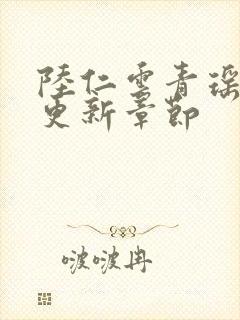 陸仁雲青瑶
更新章節
啵啵冉